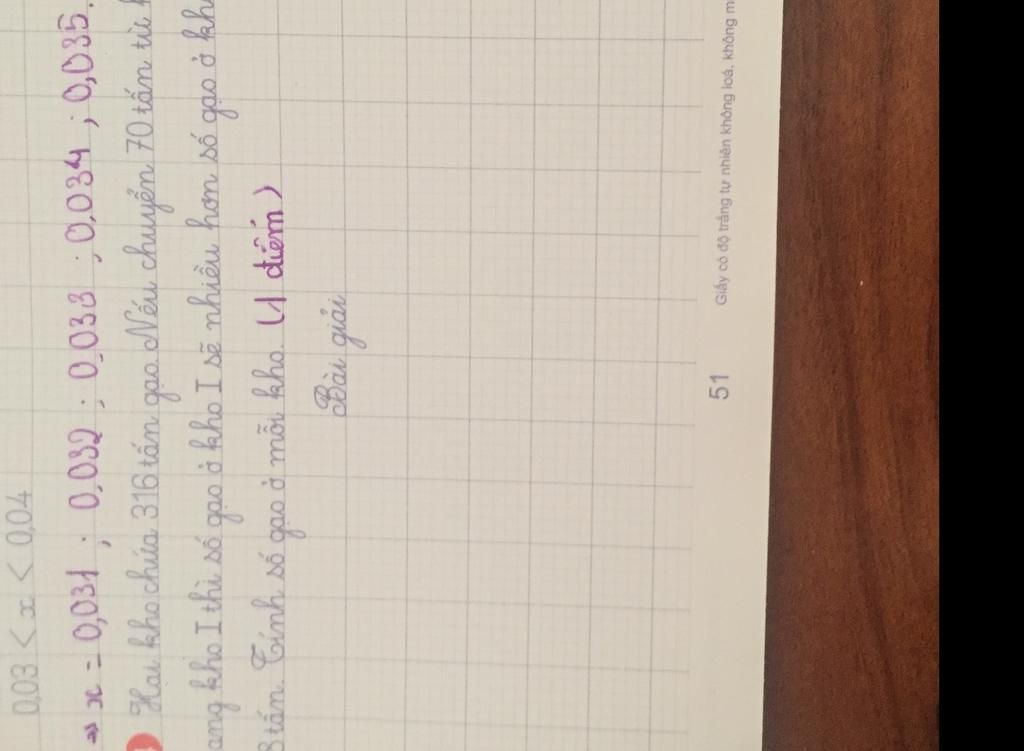 0,03 < x < 0,04
⇒ x = 0,031 ; 0,032 ; 0,033 ; 0,034 ; 0,035
Hai kho chứa 316 tấn gạo. Nếu chuyển 70 tấn từ
ang kho I thì số gạo ở kho I sẽ nhiều hơn số gạo ở
8 tấn. Tính số gạo ở mỗi kho. (1 điểm)
Bài giải
51 Giấy có độ trắng tự nhiên không loá, không m